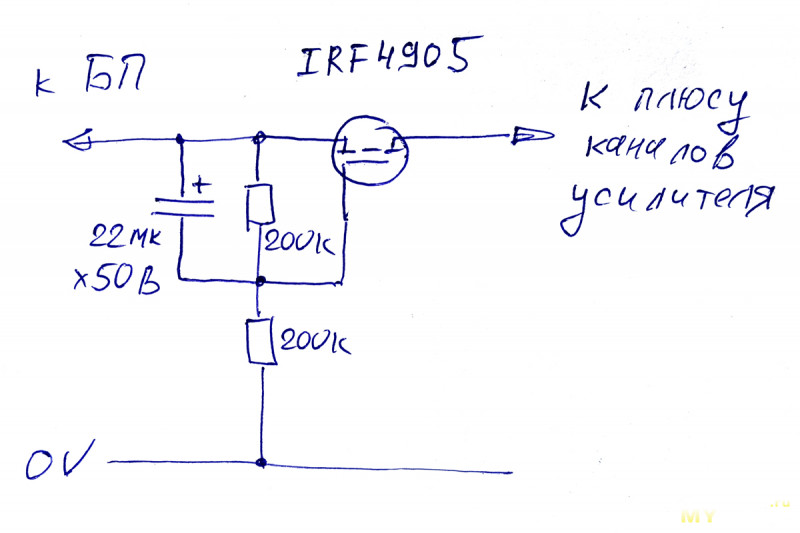 к БП
IRF4905
К плюсу
каналов
усилителя
+
22мк
x50В
200к
200к
0V
MY
.ru